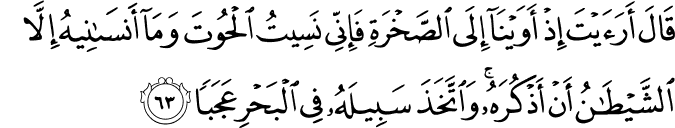 قَالَ أَرَءَيْتَ إِذْ أَوَيْنَآ إِلَى ٱلصَّخْرَةِ فَإِنِّى نَسِيتُ ٱلْحُوتَ وَمَآ أَنسَىٰنِيهُ إِلَّا
ٱلشَّيْطَٰنُ أَنْ أَذْكُرَهُۥ ۚ وَٱتَّخَذَ سَبِيلَهُۥ فِى ٱلْبَحْرِ عَجَبًا ٦٣